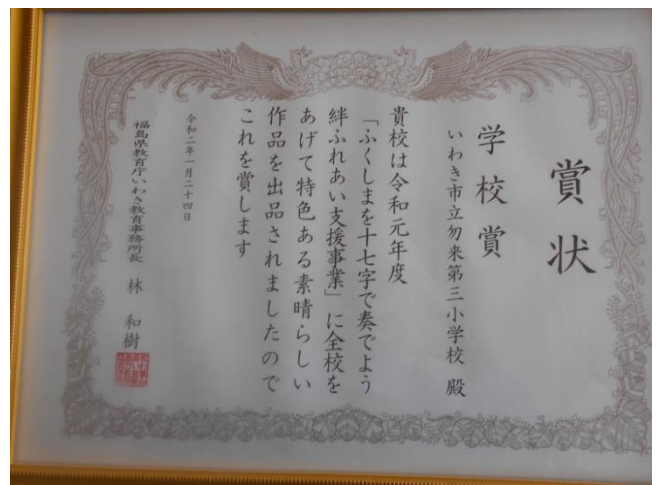 賞状
学校賞
いわき市立勿来第三小学校 殿
貴校は令和元年度
「ふくしまを十七字で奏でよう
絆ふれあい支援事業」に全校を
あげて特色ある素晴らしい
作品を出品されましたので
これを賞します
令和二年一月二十四日
福島県教育庁いわき教育事務所長 林 和樹